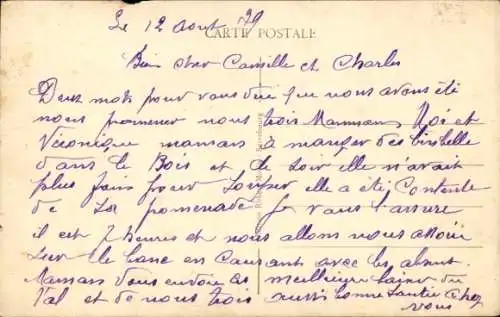 Le 12 Aout 39
CARTE POSTALE
Bien cher Camille et Charles
Deux mots pour vous dire que nous avons été
nous promener nous trois Mamans Moi et
Véronique mamans à manger des
dans le Bois et le soir elle n'avait
plus faim pour souper elle a été contente
de sa promenade Je vous l'assure
il est 7 heures et nous allons nous assoir
sur le banc en causant avec les
Mamans vous envoie ses meilleurs baisers du
Val et de nous trois aussi bonne santée chez
vous